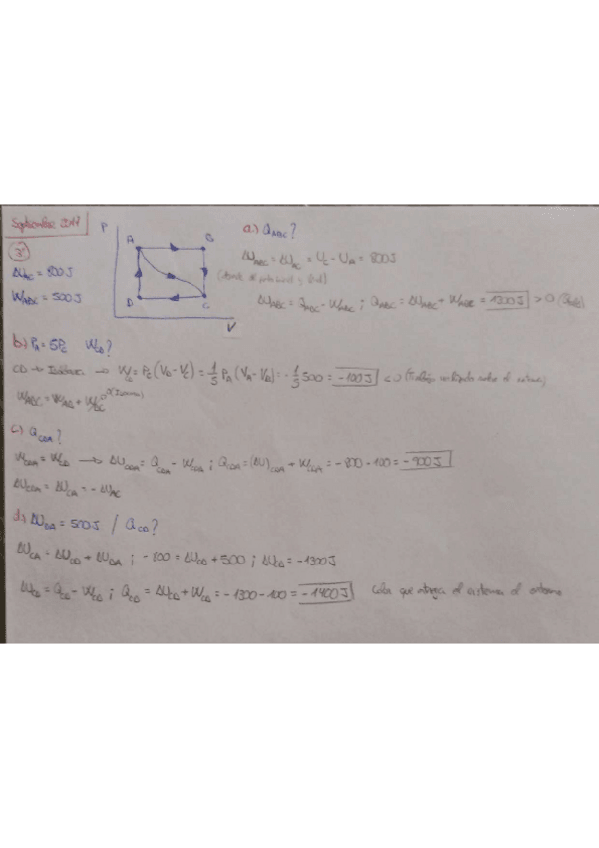 Septiembre 2017
3
ΔU_AC = 800J
W_ABC = 500J
P
A
B
D
C
V
a) Q_ABC?
ΔU_ABC = ΔU_AC = U_C - U_A = 800J
ΔU_ABC = Q_ABC - W_ABC ; Q_ABC = ΔU_ABC + W_ABC = 1300J > 0
b) P_A = 5P_C W_CD?
CD → Isobara → W = P_C (V_D - V_C) = 1/5 P_A (V_A - V_B) = -1/5 500 = -100J < 0 (Trabajo realizado sobre el sistema)
W_ABC = W_AB + W_BC 0 (Isocora)
c) Q_CDA?
W_CDA = W_CD → ΔU_CDA = Q_CDA - W_CDA ; Q_CDA = (ΔU)_CDA + W_CDA = -800 - 100 = -900J
ΔU_CDA = ΔU_CA = -ΔU_AC
d) ΔU_DA = 500J / Q_CD?
ΔU_CA = ΔU_CD + ΔU_DA ; -800 = ΔU_CD + 500 ; ΔU_CD = -1300J
ΔU_CD = Q_CD - W_CD ; Q_CD = ΔU_CD + W_CD = -1300 - 100 = -1400J Calor que entrega el sistema al entorno